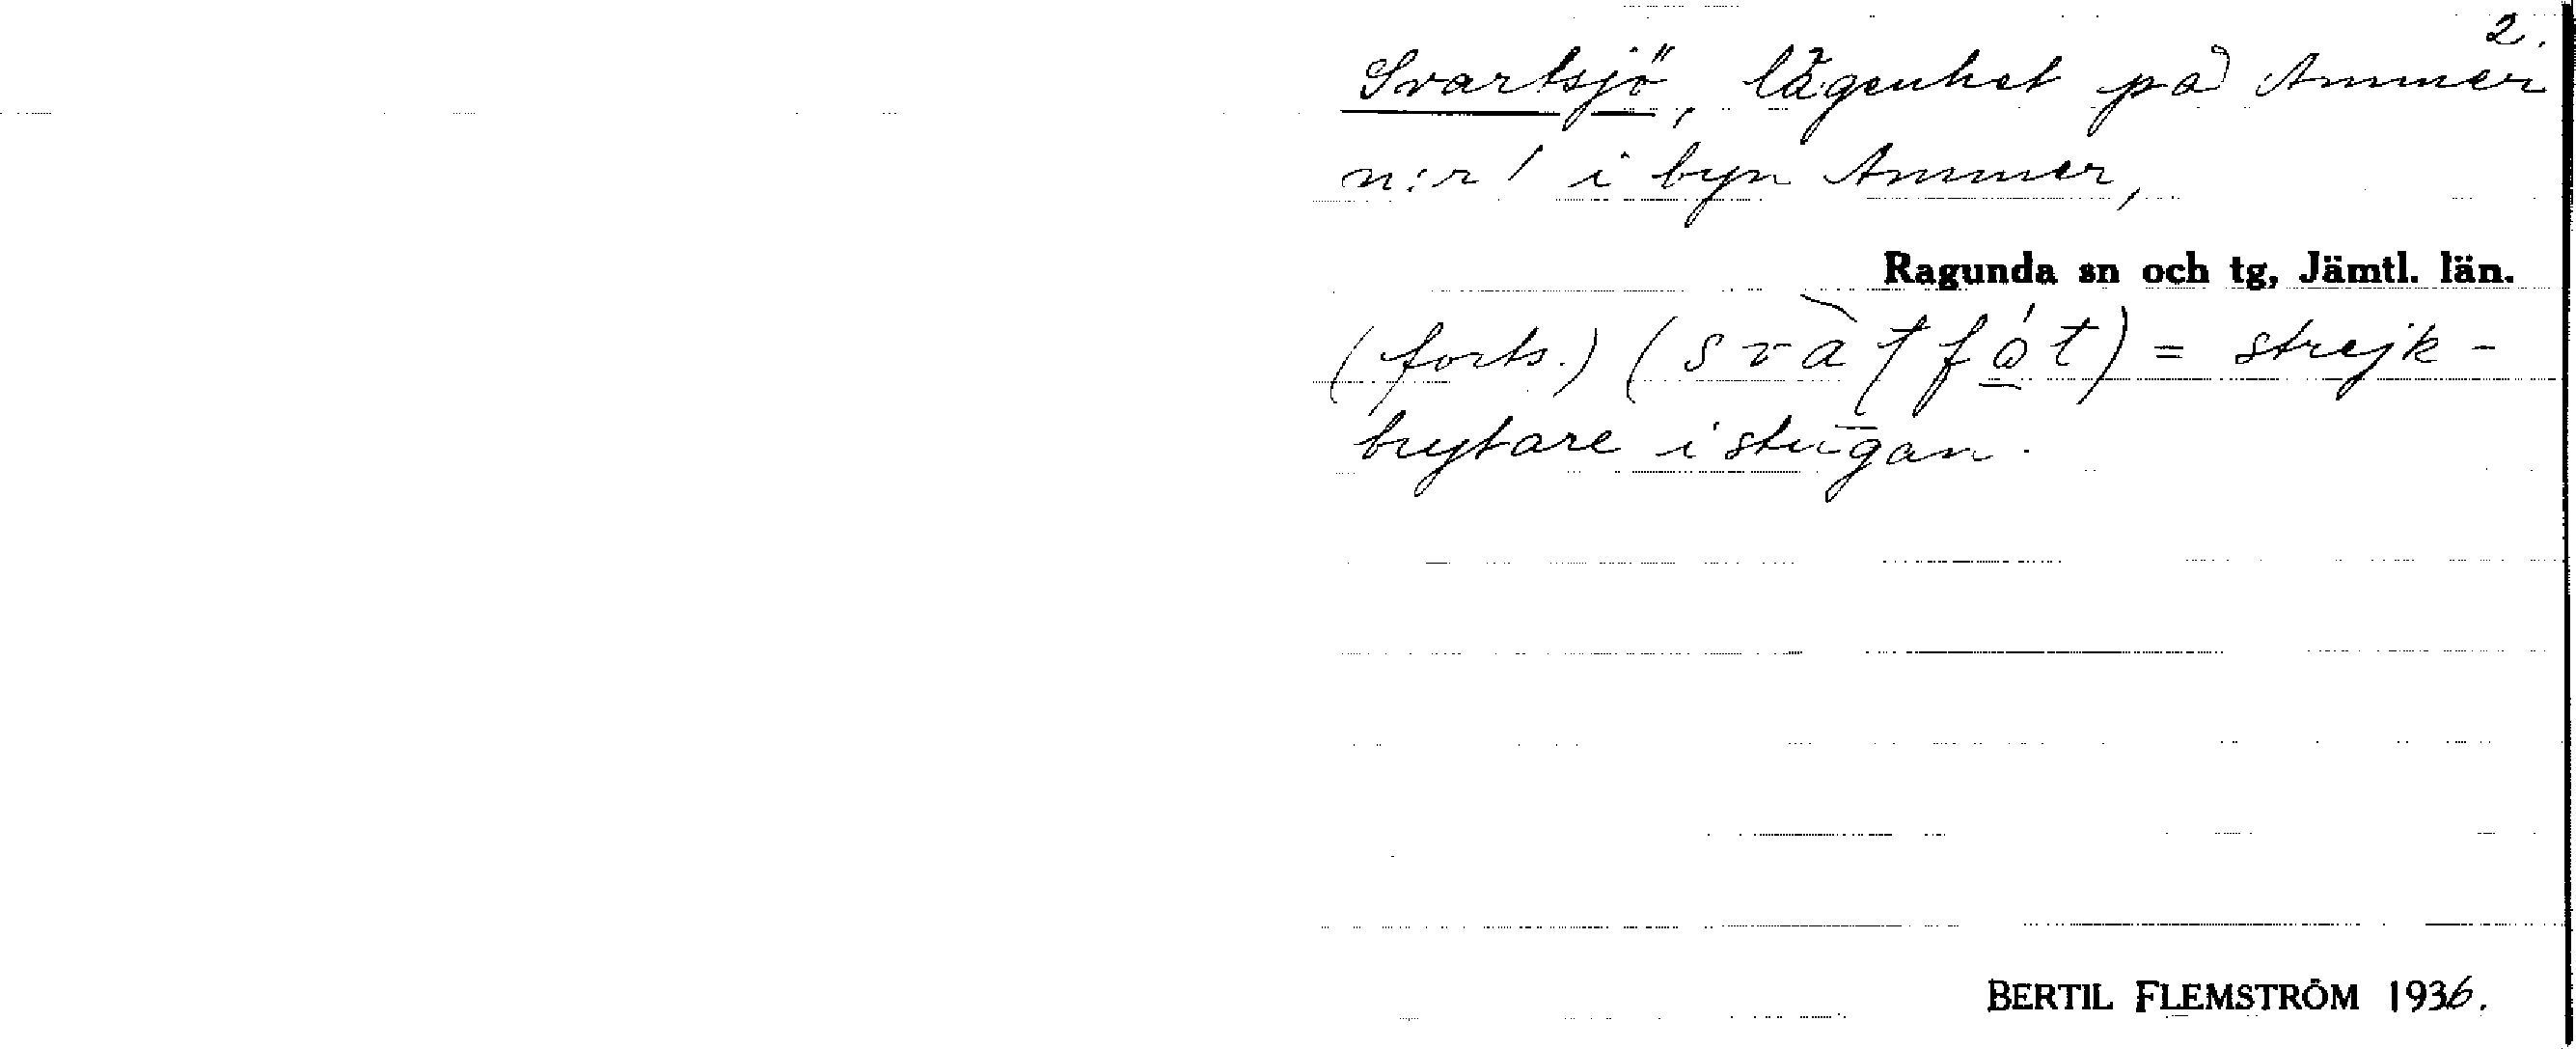 2.
Svartsjö, lägenhet på Ammer
n:r 1 i byn Ammer,
Ragunda sn och tg, Jämtl. län.
(forts.) = strejk-
brytare i stugan.
BERTIL FLEMSTRÖM 1936.